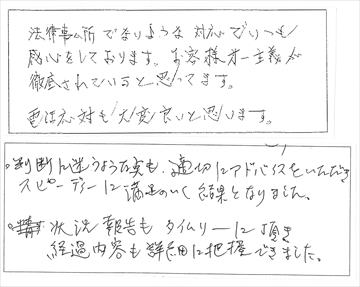 法律事ム所でないような対応でいつも
感心をしております。お客様オ一主義が
徹底されていると思ってます。
電話応対も大変良いと思います。
。判断に迷うような点も、適切にアドバイスをいただき
スピーディーに満足のいく結果となりました。
状況報告もタイムリーに頂き
経過内容も詳細に把握できました。